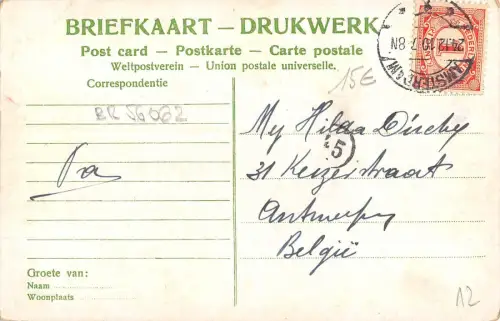 BRIEFKAART – DRUKWERK
Post card – Postkarte – Carte postale
Weltpostverein – Union postale universelle.
Correspondentie
15€
BR 56062
Pa
My Hilda Duchy
31 Keizerstraat
Antwerpen
België
5
AMSTERDAM
24.12.10.7-8N
Groete van:
Naam
Woonplaats
12